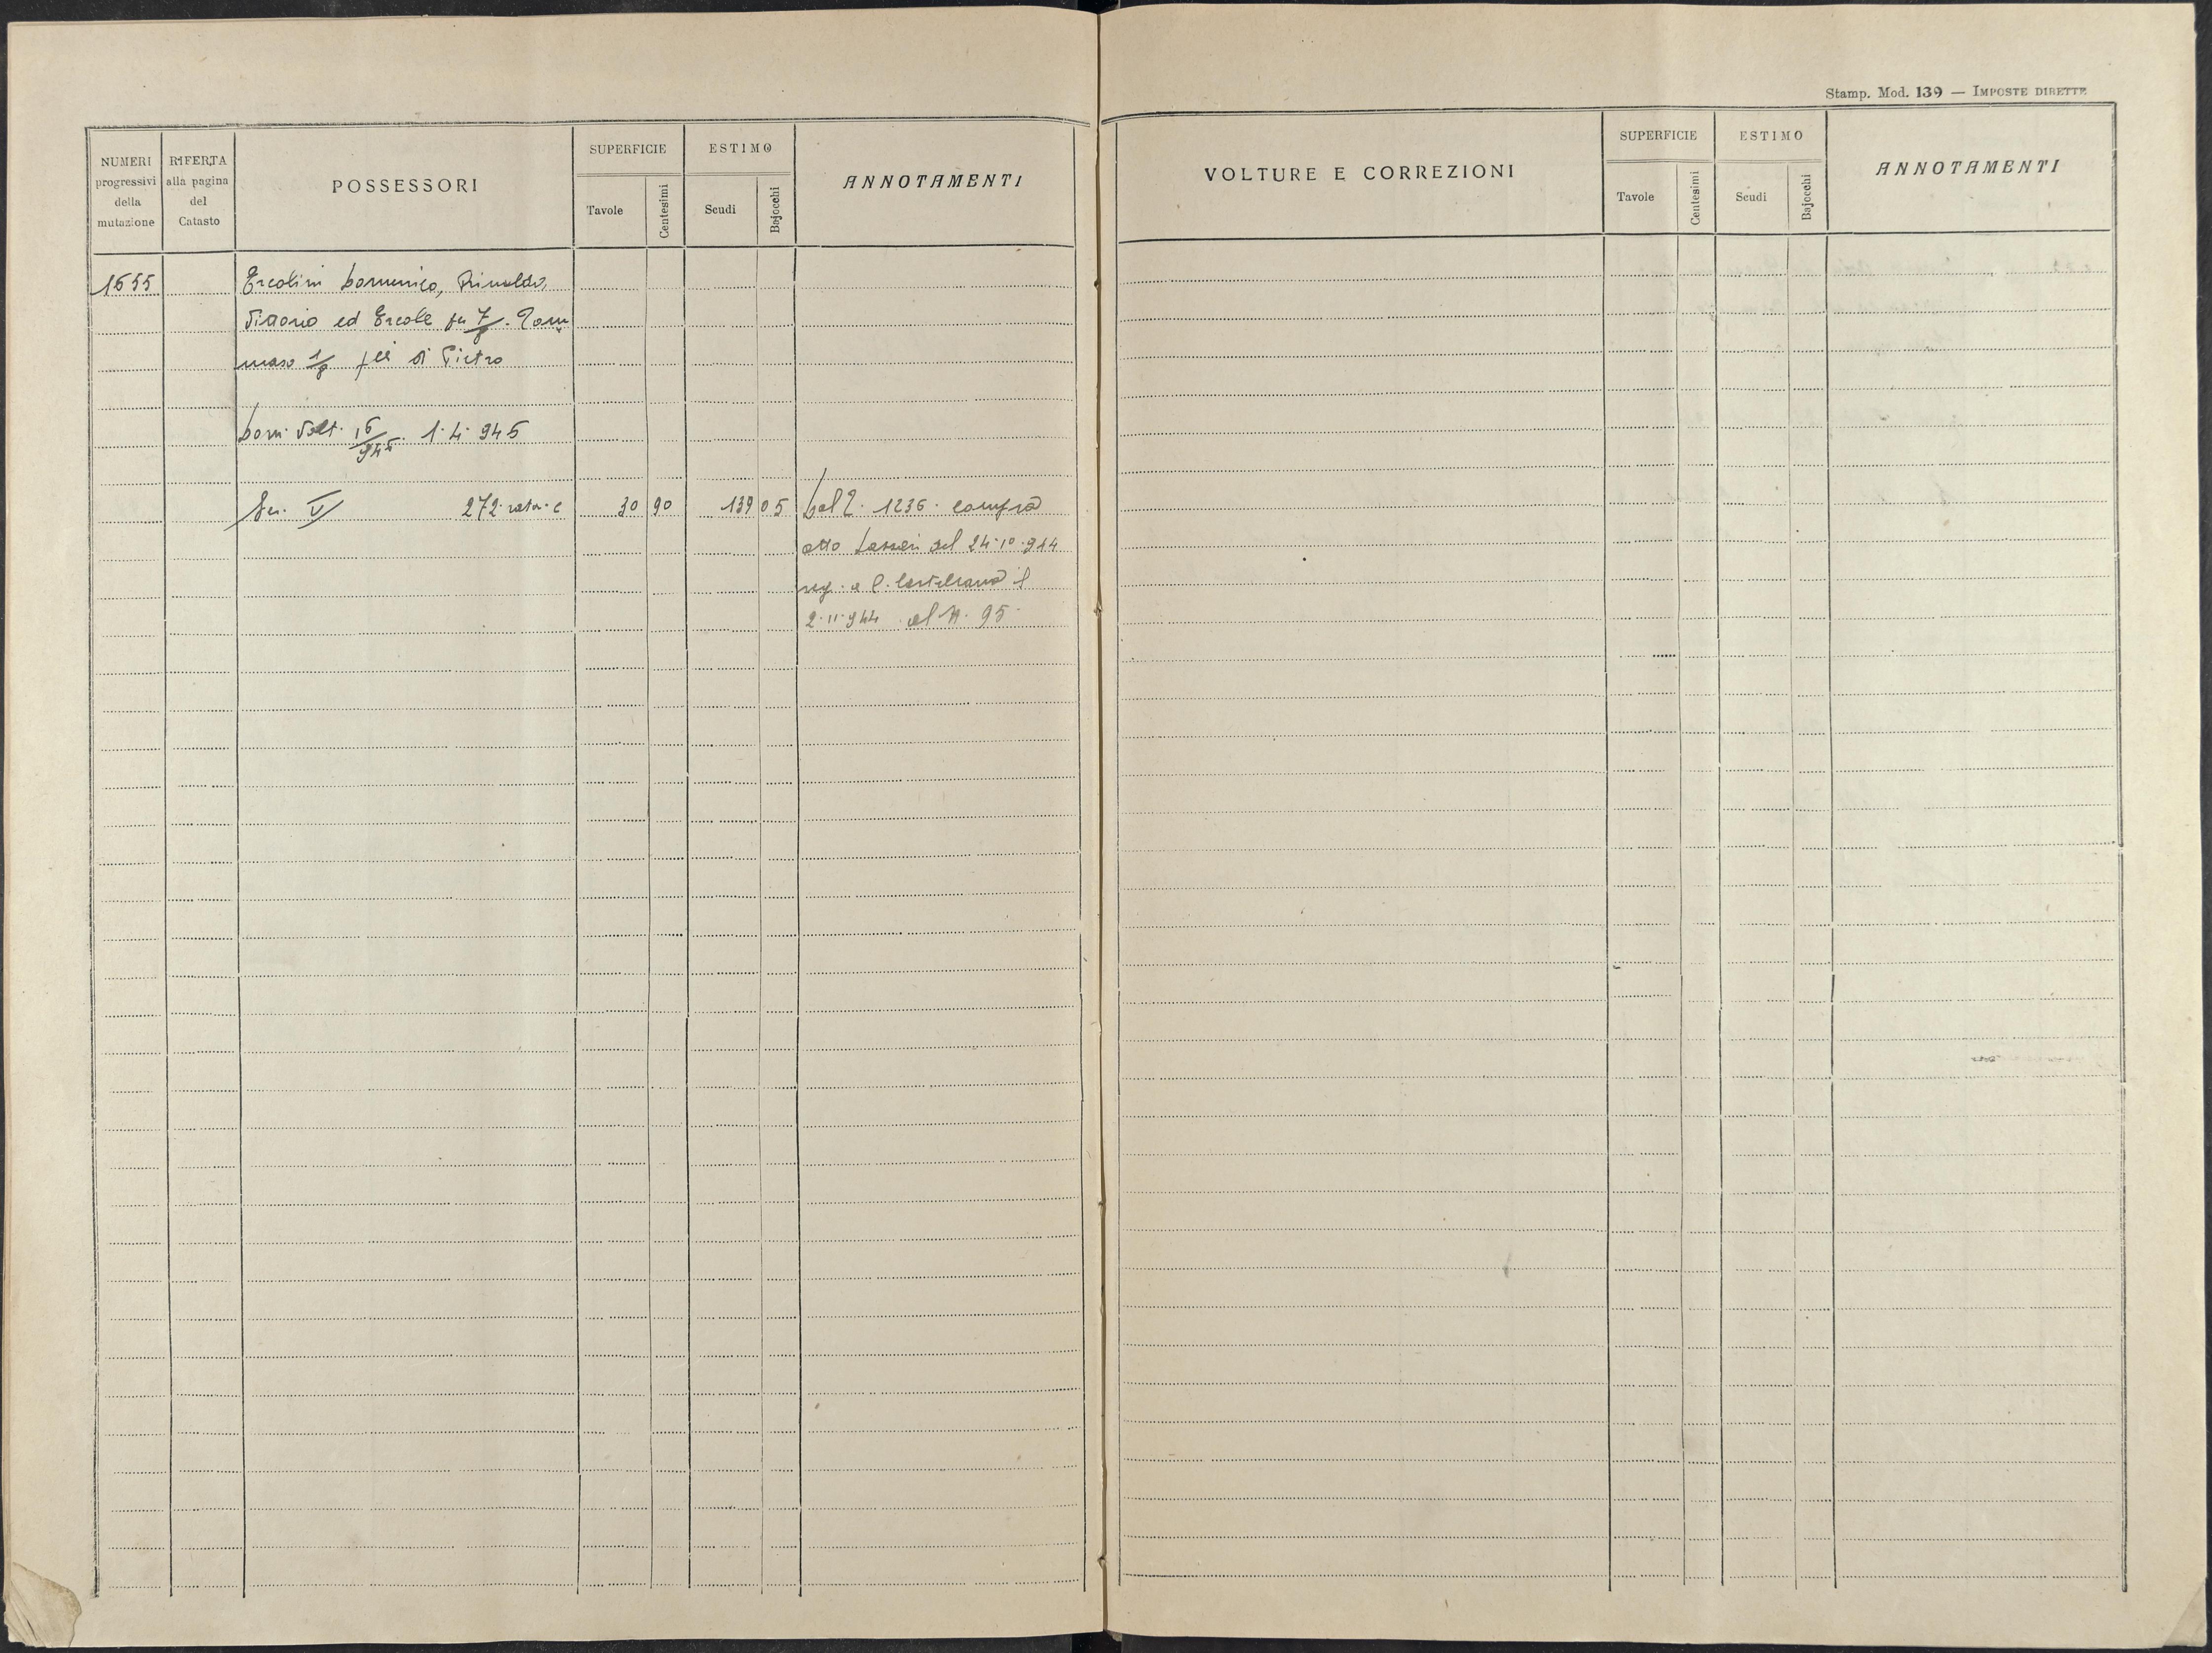 Stamp. Mod. 139 — IMPOSTE DIRETTE
NUMERI progressivi della mutazione
RIFERTA alla pagina del Catasto
POSSESSORI
SUPERFICIE
Tavole
Centesimi
ESTIMO
Scudi
Bajocchi
ANNOTAMENTI
VOLTURE E CORREZIONI
SUPERFICIE
Tavole
Centesimi
ESTIMO
Scudi
Bajocchi
ANNOTAMENTI
1655 Ercolini Domenico, Rinaldo,
Vittorio ed Ercole per 7/8. Tom
maso 1/8 flli di Pietro
Dom. Volt. 16/945. 1.4.945
Sez. V 272 rata c 30 90 139 05 Dal 2. 1236. compra
atto del 24.10.944
reg. a C. Castellana il
2.11.944 al N. 95